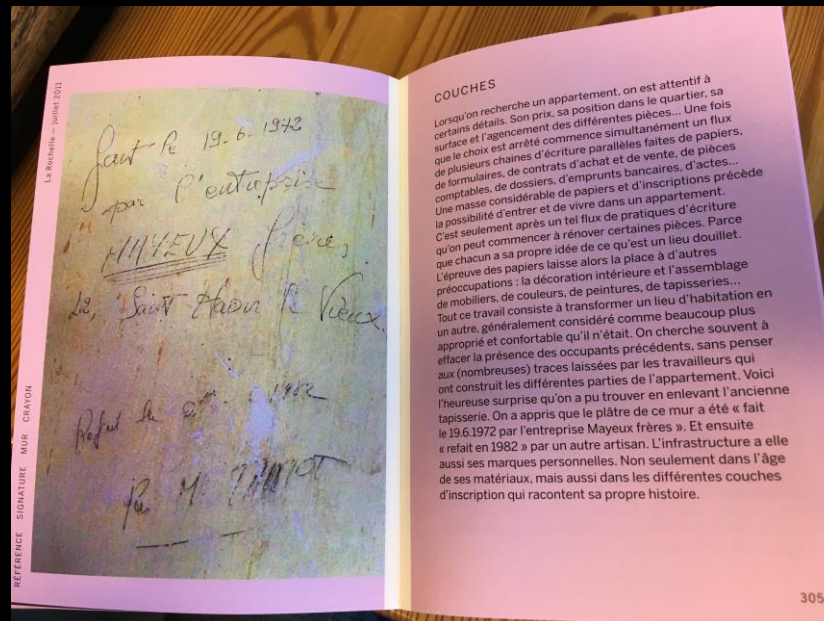 La Rochelle — juillet 2011
fait le 19.6.1972
par l'entreprise
MAYEUX frères
42, Saint Haon le Vieux
Refait le 1982
par M
RÉFÉRENCE SIGNATURE MUR CRAYON
COUCHES
Lorsqu'on recherche un appartement, on est attentif à
certains détails. Son prix, sa position dans le quartier, sa
surface et l'agencement des différentes pièces... Une fois
que le choix est arrêté commence simultanément un flux
de plusieurs chaines d'écriture parallèles faites de papiers,
de formulaires, de contrats d'achat et de vente, de pièces
comptables, de dossiers, d'emprunts bancaires, d'actes...
Une masse considérable de papiers et d'inscriptions précède
la possibilité d'entrer et de vivre dans un appartement.
C'est seulement après un tel flux de pratiques d'écriture
qu'on peut commencer à rénover certaines pièces. Parce
que chacun a sa propre idée de ce qu'est un lieu douillet.
L'épreuve des papiers laisse alors la place à d'autres
préoccupations : la décoration intérieure et l'assemblage
de mobiliers, de couleurs, de peintures, de tapisseries...
Tout ce travail consiste à transformer un lieu d'habitation en
un autre, généralement considéré comme beaucoup plus
approprié et confortable qu'il n'était. On cherche souvent à
effacer la présence des occupants précédents, sans penser
aux (nombreuses) traces laissées par les travailleurs qui
ont construit les différentes parties de l'appartement. Voici
l'heureuse surprise qu'on a pu trouver en enlevant l'ancienne
tapisserie. On a appris que le plâtre de ce mur a été « fait
le 19.6.1972 par l'entreprise Mayeux frères ». Et ensuite
« refait en 1982 » par un autre artisan. L'infrastructure a elle
aussi ses marques personnelles. Non seulement dans l'âge
de ses matériaux, mais aussi dans les différentes couches
d'inscription qui racontent sa propre histoire.
305